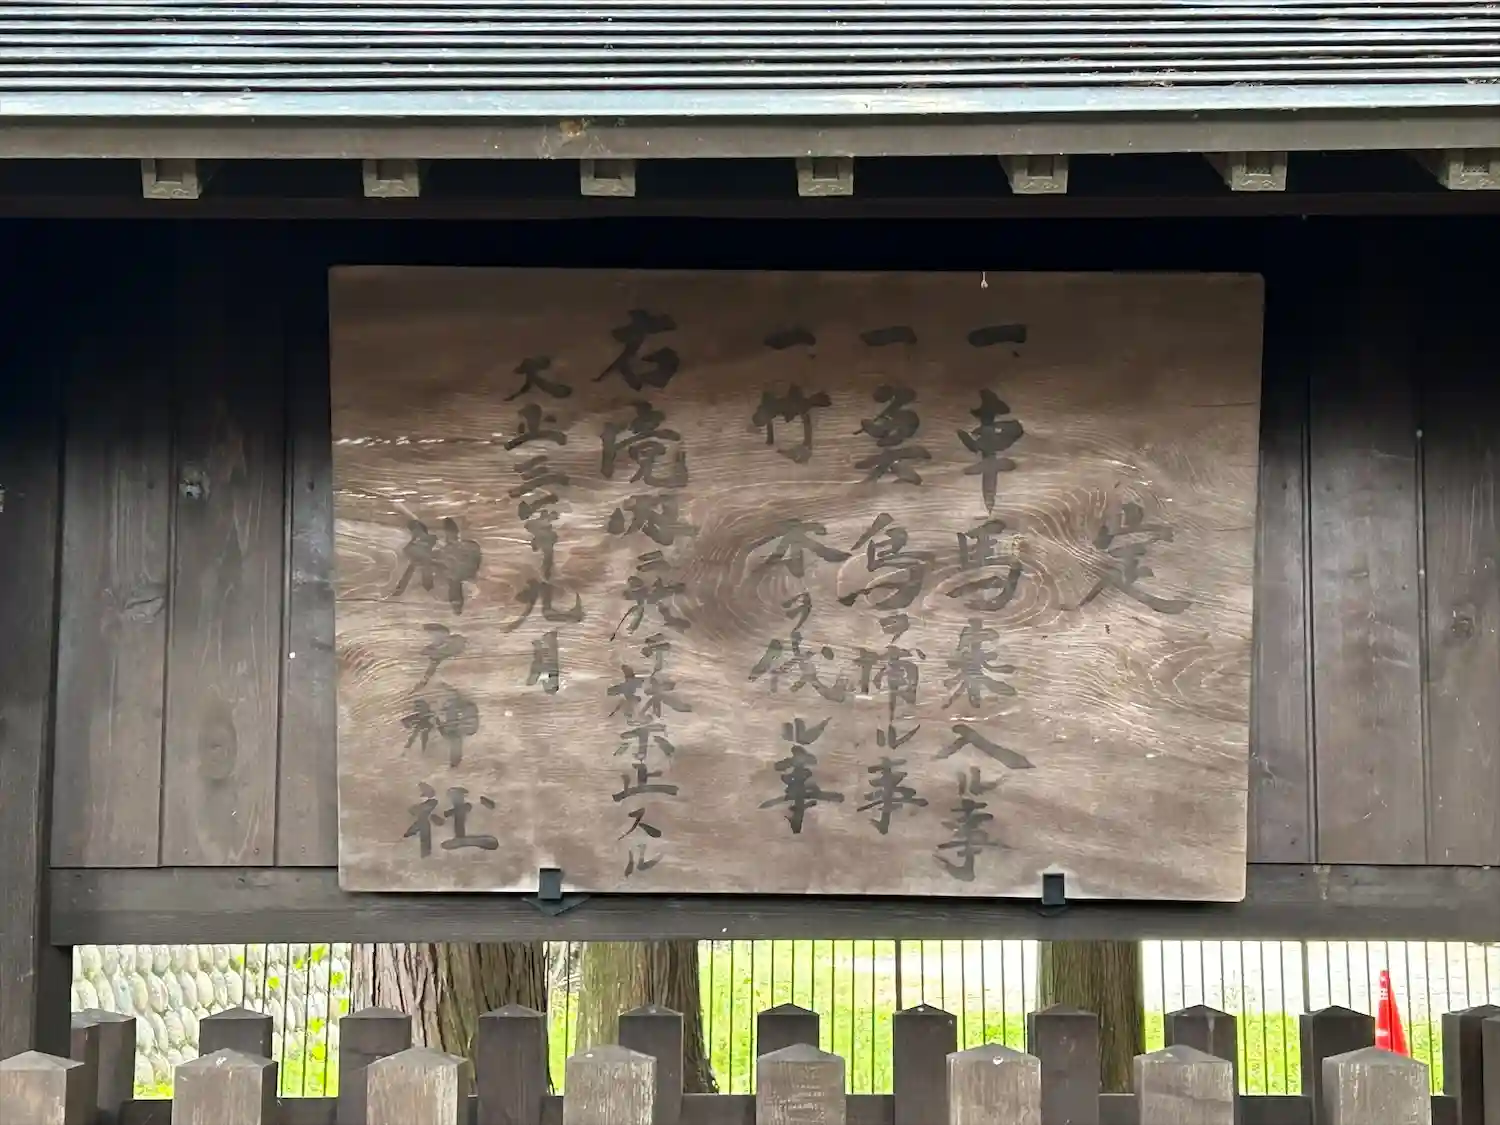 定
一、車馬乗入ル事
一魚鳥ヲ捕ル事
一竹木ヲ伐ル事
右境内ニ於テ禁止スル
大正三年九月
神戸神社